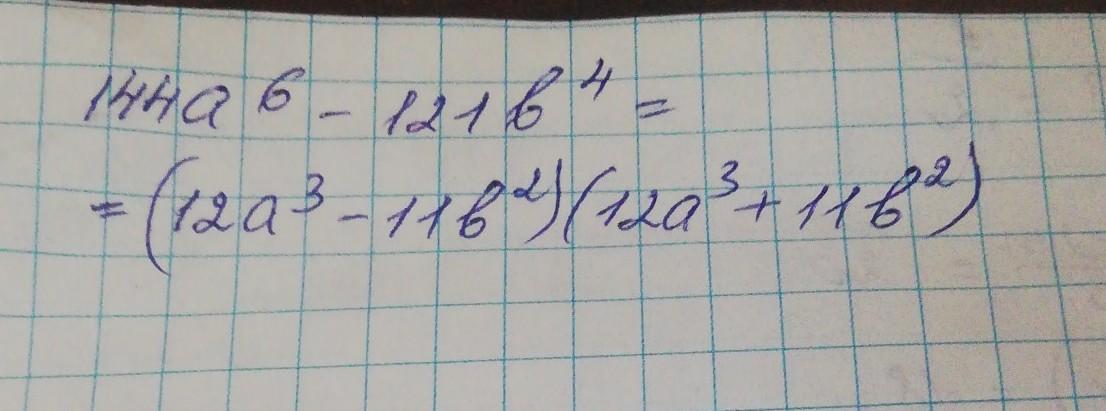 144a⁶ - 121b⁴ =
= (12a³ - 11b²)(12a³ + 11b²)